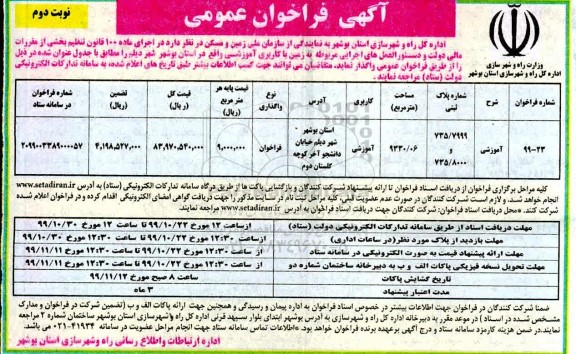 نوبت دوم
آگهی فراخوان عمومی
وزارت راه و شهرسازی
اداره کل راه و شهرسازی استان بوشهر
اداره کل راه و شهرسازی استان بوشهر به نمایندگی از سازمان ملی زمین و مسکن در نظر دارد در اجرای ماده ۱۰۰ قانون تنظیم بخشی از مقررات
مالی دولت و دستورالعمل های اجرایی مربوطه به زمین با کاربری آموزشی واقع در استان بوشهر شهر دیلم را مطابق با جدول عنوان شده در ذیل
را از طریق فراخوان عمومی واگذار نماید. متقاضیان می توانند جهت کسب اطلاعات بیشتر طبق تاریخ های اعلام شده، به سامانه تدارکات الکترونیکی
دولت (ستاد) مراجعه نمایند.
شماره فراخوان شرح شماره پلاک ثبتی مساحت (مترمربع) کاربری آدرس نوع واگذاری قیمت پایه هر متر مربع قیمت کل تضمین شماره فراخوان در سامانه ستاد
۹۹-۲۳ آموزشی ۷۳۵/۷۹۹۹ و ۷۳۵/۸۰۰۰ ۹۳۳۰/۰۶ آموزشی استان بوشهر - شهر دیلم خیابان دانشجو آخر کوچه گلستان دوم فراخوان ۹,۰۰۰,۰۰۰ ۸۳,۹۷۰,۵۴۰,۰۰۰ ۴,۱۹۸,۵۲۷,۰۰۰ ۲۰۹۹۰۰۳۳۸۹۰۰۰۰۵۷
کلیه مراحل برگزاری فراخوان از دریافت اسناد فراخوان تا ارائه پیشنهاد شرکت کنندگان و بازگشایی پاکت ها از طریق درگاه سامانه تدارکات الکترونیکی (ستاد) به آدرس www.setadiran.ir
انجام خواهد شد. و لازم است شرکت کنندگان در صورت عدم عضویت قبلی، کلیه مراحل ثبت نام در سایت مذکور را جهت دریافت گواهی امضای الکترونیکی اقدام کرده و در فراخوان اعلام شده
شرکت کنند. محل دریافت اسناد فراخوان: شرکت کنندگان جهت دریافت اسناد فراخوان به آدرس www.setadiran.ir مراجعه نمایند.
مهلت دریافت اسناد از طریق سامانه تدارکات الکترونیکی دولت (ستاد) از ساعت ۱۲ مورخ ۹۹/۱۰/۲۲ تا ساعت ۱۲ مورخ ۹۹/۱۰/۳۰
مهلت بازدید از پلاک مورد نظر (در ساعات اداری) از ساعت ۱۲:۳۰ مورخ ۹۹/۱۰/۲۲ تا ساعت ۱۲:۳۰ مورخ ۹۹/۱۰/۳۰
مهلت ارائه پیشنهاد قیمت به صورت الکترونیکی در سامانه ستاد از ساعت ۱۲:۳۰ مورخ ۹۹/۱۰/۲۲ تا ساعت ۱۲:۳۰ مورخ ۹۹/۱۱/۱۱
مهلت تحویل نسخه فیزیکی پاکات الف و ب به دبیرخانه ساختمان شماره دو از ساعت ۱۲:۳۰ مورخ ۹۹/۱۰/۲۲ تا ساعت ۱۲:۳۰ مورخ ۹۹/۱۱/۱۱
تاریخ گشایش پاکات ساعت ۸ صبح مورخ ۹۹/۱۱/۱۲
مدت اعتبار پیشنهاد ۳ ماه
ضمنا شرکت کنندگان در فراخوان جهت اطلاعات بیشتر در خصوص اسناد فراخوان به اداره پیمان و رسیدگی و همچنین جهت ارائه پاکات الف و ب (تضمین شرکت در فراخوان و مدارک
مشخص شده در اسناد) در موعد مقرر به دبیرخانه اداره کل راه و شهرسازی به آدرس بوشهر ابتدای بلوار سپهبد قرنی اداره کل راه و شهرسازی استان بوشهر ساختمان شماره ۲ مراجعه
نمایند. در ضمن هزینه کارمزد سامانه ستاد و درج آگهی برعهده برنده فراخوان خواهد بود. اطلاعات تماس سامانه ستاد جهت انجام مراحل عضویت در سامانه ۴۱۹۳۴-۰۲۱ می باشد.
اداره ارتباطات و اطلاع رسانی راه و شهرسازی استان بوشهر